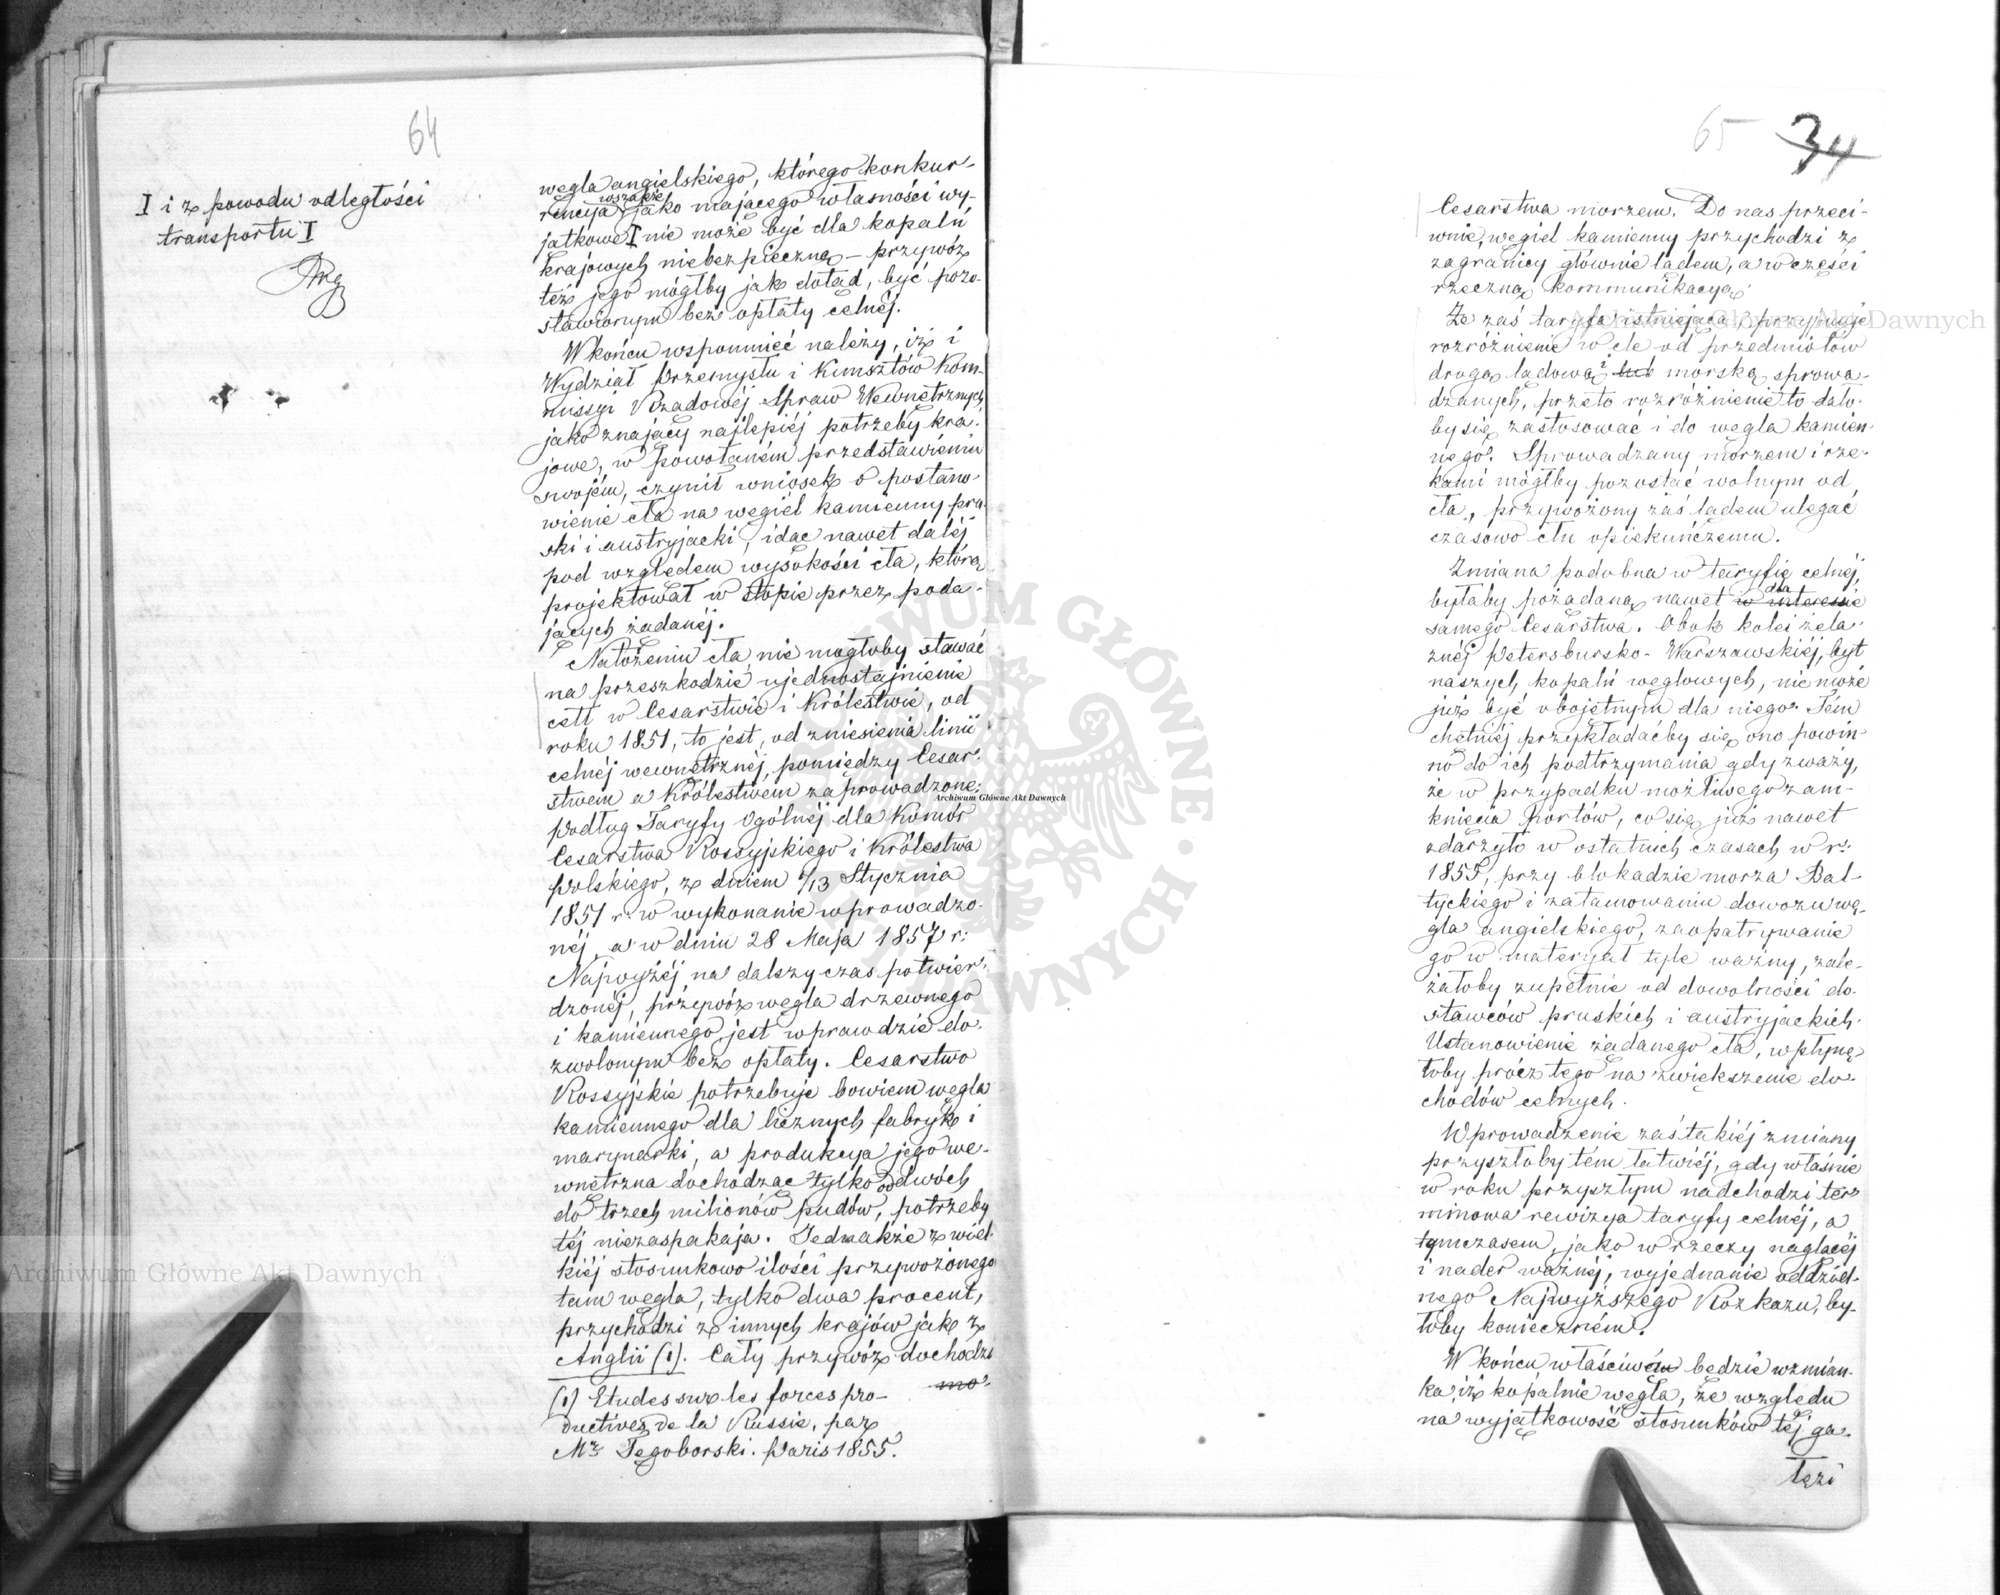 64
I i z powodu odległości
transportu I
węgla angielskiego, którego konkur-
rencyja wszakże jako mającego własności wy-
jątkowe I nie może być dla kopalń
krajowych niebezpieczną – przywóz
też jego mógłby jak dotąd, być pozo-
stawionym bez opłaty celnéj.
W końcu wspomnieć należy, iż i
Wydział Przemysłu i Kunsztów Kom-
missyi Rządowéj Spraw Wewnętrznych,
jako znający najlepiéj potrzeby kra-
jowe, w powołaném przedstawieniu
swojém, czynił wniosek o postano-
wienie cła na węgiel kamienny pru-
ski i austryjacki, idąc nawet daléj
pod względem wysokości cła, którą
projektował w stopie przez poda-
jących żądanéj.
Nałożeniu cła nie mogłoby stawać
na przeszkodzie ujednostajnienie
ceł w Cesarstwie i Królestwie, od
roku 1851, to jest, od zniesienia linii
celnéj wewnętrznéj, pomiędzy Cesar-
stwem a Królestwem zaprowadzone;
podług Taryfy Ogólnéj dla Komór
Cesarstwa Rossyjskiego i Królestwa
Polskiego, z dniem 1/13 Stycznia
1851 r. w wykonanie wprowadzo-
néj, a w dniu 28 Maja 1857 r:
Najwyżéj na dalszy czas potwier-
dzonéj, przywóz węgla drzewnego
i kamiennego jest wprawdzie do-
zwolonym bez opłaty. Cesarstwo
Rossyjskie potrzebuje bowiem węgla
kamiennego dla licznych fabryk i
marynarki, a produkcya jego we-
wnętrzna dochodząc tylko od dwóch
do trzech milionów pudów, potrzeby
téj niezaspakaja. Jednakże z wiel-
kiéj stosunkowo ilości przywożonego
tam węgla, tylko dwa procent,
przychodzi z innych krajów jak z
Anglii (1). Cały przywóz dochodzi
mo-
(1) Etudes sur les forces pro-
ductives de la Russie, par
Mr Tęgoborski. Paris 1855.
65 34
Cesarstwa morzem. Do nas przeci-
wnie, węgiel kamienny przychodzi z
zagranicy głównie lądem, a w części
rzeczną kommunikacyą.
Że zaś taryfa istniejąca, przyjmuje
rozróżnienie w cle od przedmiotów
drogą lądową i lub morską sprowa-
dzanych, przeto rozróżnienie to dało-
by się zastosować i do węgla kamien-
nego. Sprowadzany morzem i rze-
kami mógłby pozostać wolnym od
cła, przywożony zaś lądem ulegać
czasowo cłu opiekuńczemu.
Zmiana podobna w taryfie celnéj,
byłaby pożądaną nawet w interesie dla
samego Cesarstwa. Obok kolei żela-
znéj Petersbursko-Warszawskiéj, byt
naszych kopalń węglowych, nie może
już być obojętnym dla niego. Tém
chętniéj przykładaćby się ono powin-
no do ich podtrzymania gdy zważy,
że w przypadku możliwego zam-
knięcia portów, co się już nawet
zdarzyło w ostatnich czasach w r:
1855, przy blokadzie morza Bal-
tyckiego i zatamowaniu dowozu wę-
gla angielskiego, zaopatrywanie
go w materyał tyle ważny, zale-
żałoby zupełnie od dowolności do-
stawców pruskich i austryjackich.
Ustanowienie żądanego cła, wpłynę-
łoby prócz tego na zwiększenie do-
chodów celnych.
Wprowadzenie zaś takiéj zmiany
przyszłoby tém łatwiéj, gdy właśnie
w roku przyszłym nadchodzi ter-
minowa rewizya taryfy celnéj, a
tymczasem, jako w rzeczy naglącéj
i nader ważnéj, wyjednanie oddziel-
nego Najwyższego Rozkazu, by-
łoby konieczném.
W końcu właściwém będzie wzmian-
ka, iż kopalnie węgla, ze względu
na wyjątkowość stosunków téj ga-
łęzi
Archiwum Główne Akt Dawnych
Archiwum Główne Akt Dawnych
Archiwum Główne Akt Dawnych
ARCHIWUM GŁÓWNE AKT DAWNYCH